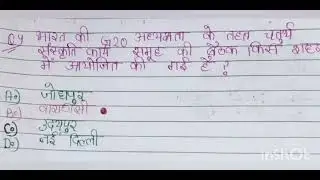 Q4 भारत की G20 अध्यक्षता के तहत चतुर्थ
संस्कृति कार्य समूह की बैठक किस शहर
में आयोजित की गई है ?
A० जोधपुर
B० वाराणसी
C० उदयपुर
D० नई दिल्ली
InShOt